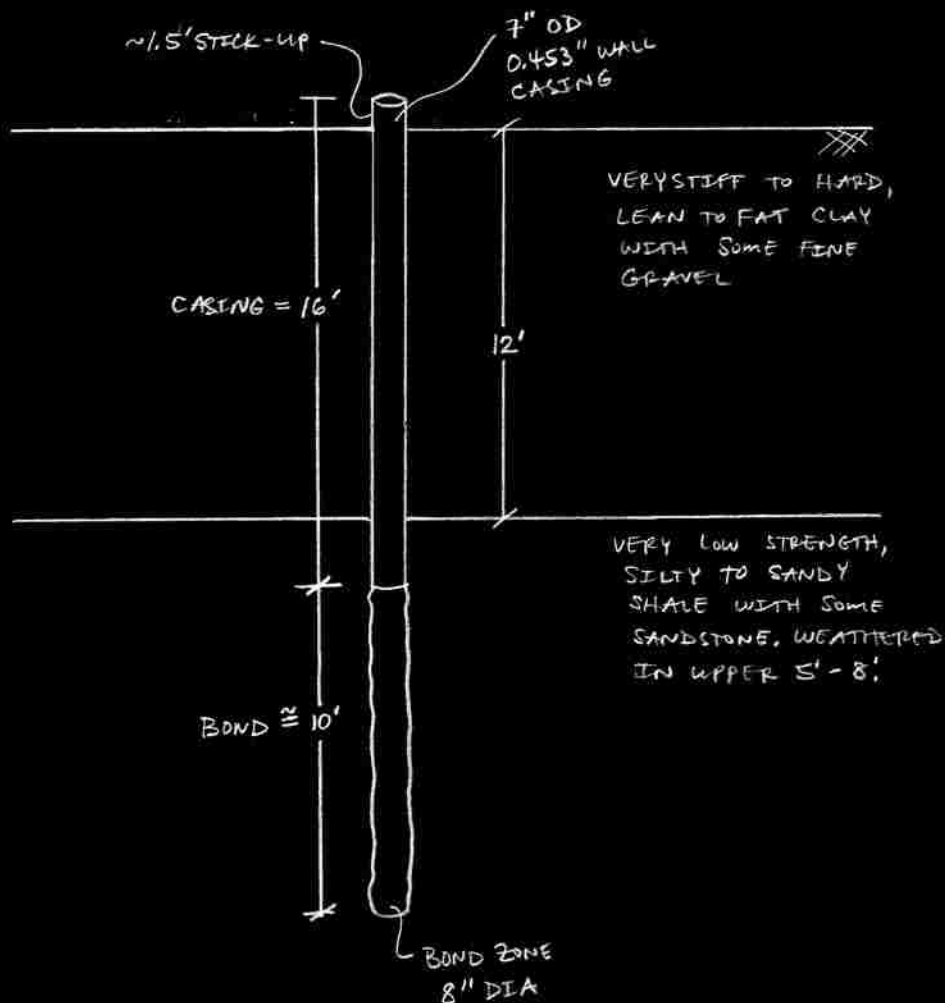 ~1.5' STICK-UP
7" OD
0.453" WALL
CASING
VERY STIFF TO HARD,
LEAN TO FAT CLAY
WITH SOME FINE
GRAVEL
CASING = 16'
12'
VERY LOW STRENGTH,
SILTY TO SANDY
SHALE WITH SOME
SANDSTONE. WEATHERED
IN UPPER 5'-8'.
BOND ≅ 10'
BOND ZONE
8" DIA